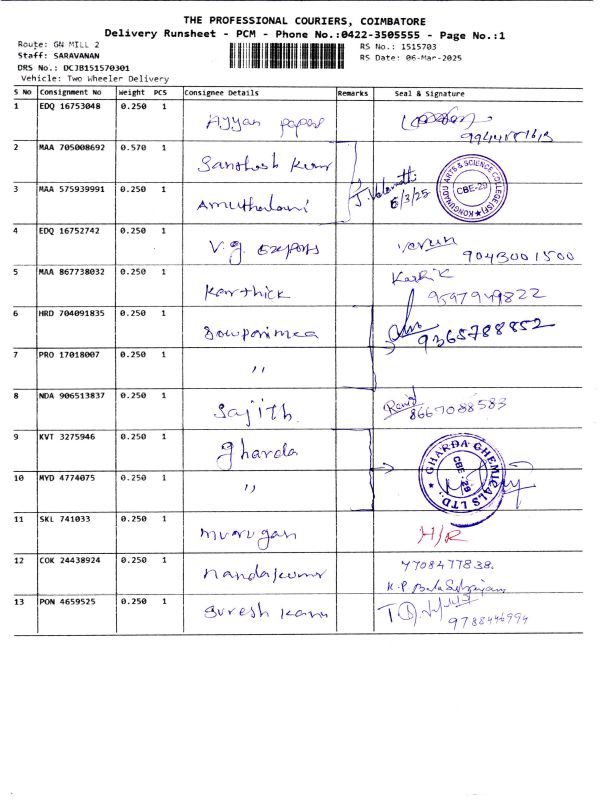 THE PROFESSIONAL COURIERS, COIMBATORE
Delivery Runsheet - PCM - Phone No.:0422-3505555 - Page No.:1
Route: GN MILL 2
RS No.: 1515703
Staff: SARAVANAN
RS Date: 06-Mar-2025
DRS No.: DCJB151570301
Vehicle: Two Wheeler Delivery
S No Consignment No Weight PCS Consignee Details Remarks Seal & Signature
1 EDQ 16753048 0.250 1 Ayyan papers
2 MAA 705008692 0.570 1 Santhosh Kumar
3 MAA 575939991 0.250 1
6/3/25
KONGUNADU ARTS & SCIENCE COLLEGE
CBE-29
4 EDQ 16752742 0.250 1 V.g. Exports
9043001500
5 MAA 867738032 0.250 1 Karthick
Karthik
9597949822
6 HRD 704091835 0.250 1
9365788852
7 PRO 17018007 0.250 1 "
8 NDA 906513837 0.250 1 Sajith
8667088583
9 KVT 3275946 0.250 1 gharda
GHARDA CHEMICALS LTD.,
CBE - 29
10 MYD 4774075 0.250 1 "
11 SKL 741033 0.250 1 murugan H/R
12 COK 24438924 0.250 1 nandakumar 7708477838.
13 PON 4659525 0.250 1 Suresh
9788446994